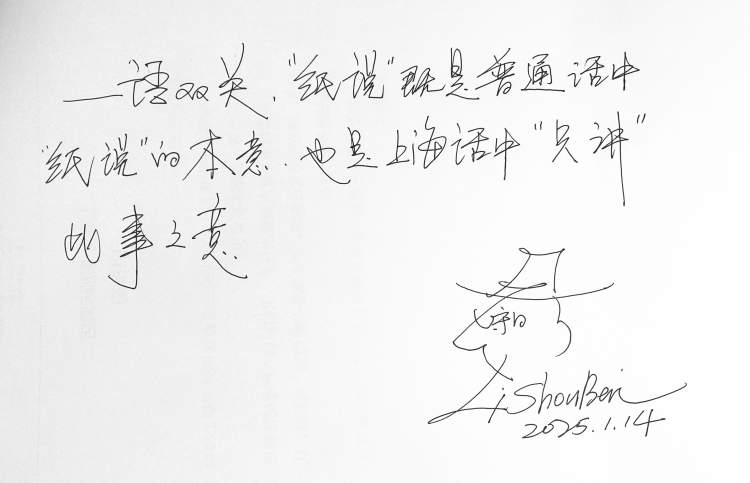 一语双关，“纸说”既是普通话中
“纸说”的本意，也是上海话中“只讲”
此事之意
守白
Li ShouBai
2025.1.14